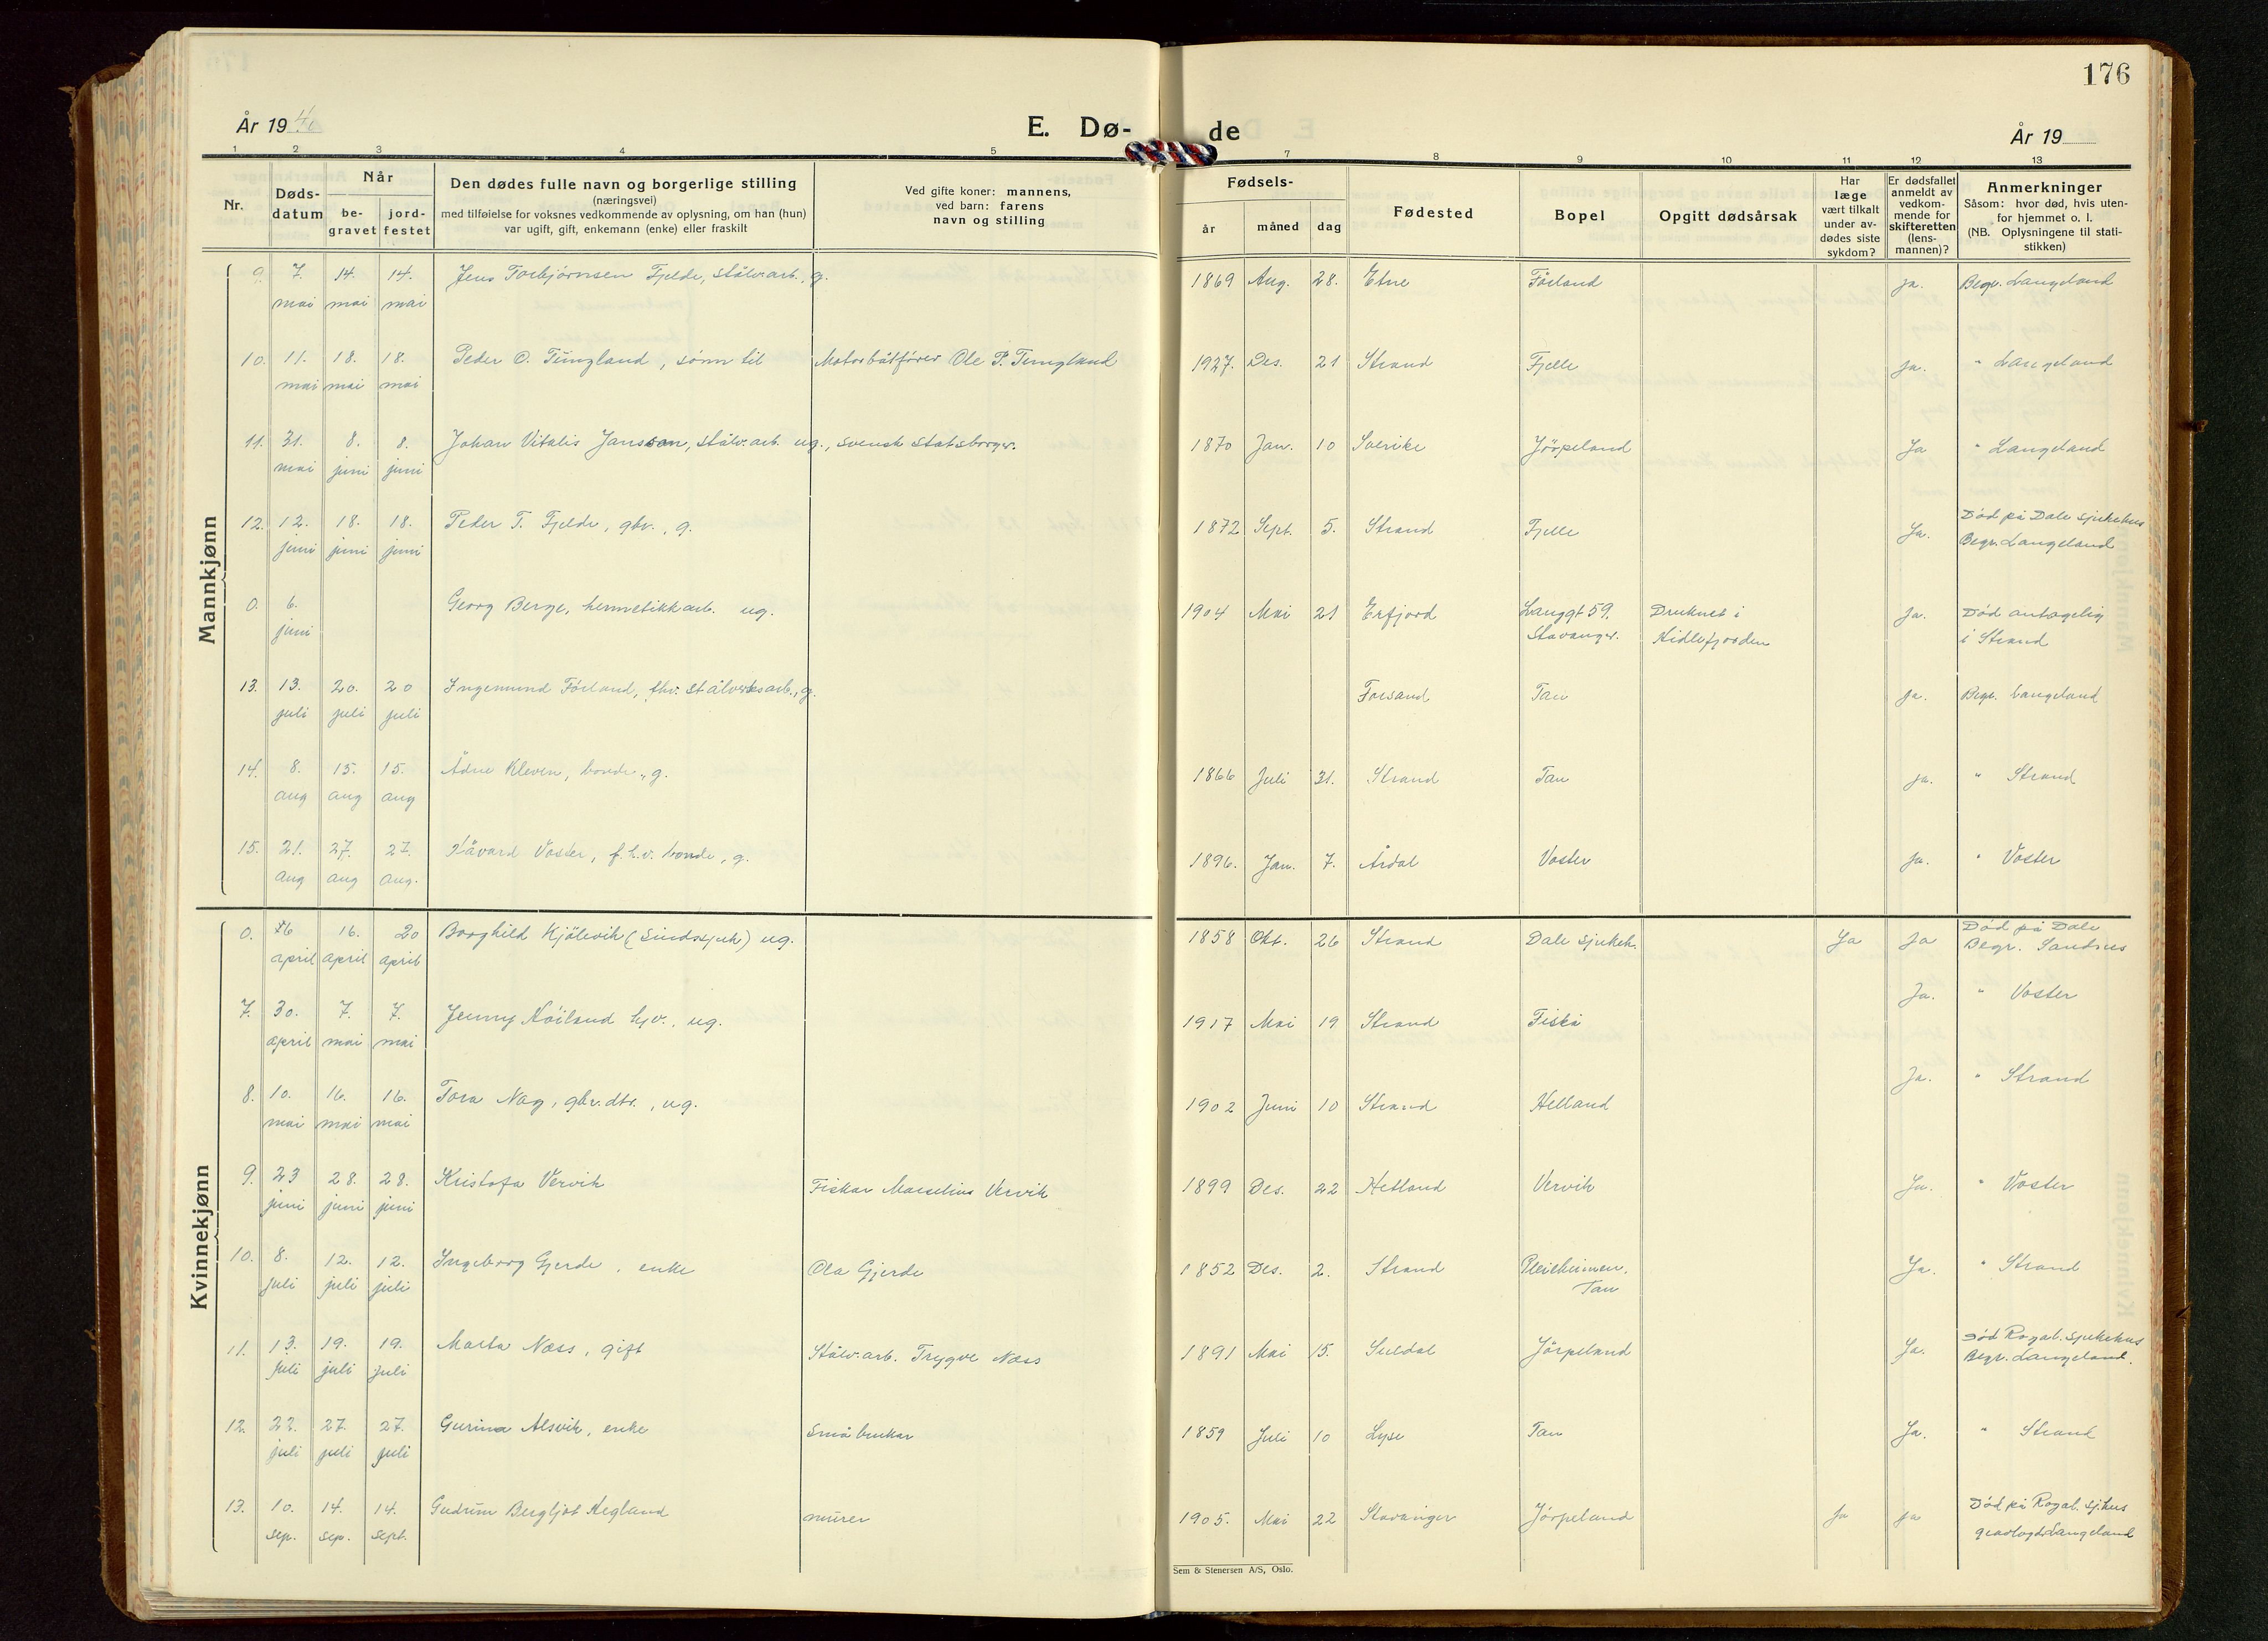 176
År 19 40
E. Dø-
de
År 19
1 2 3 4 5 7 8 9 10 11 12 13
Nr.
Døds-
datum
Når
be-
gravet
jord-
festet
Den dødes fulle navn og borgerlige stilling
(næringsvei)
med tilføielse for voksnes vedkommende av oplysning, om han (hun)
var ugift, gift, enkemann (enke) eller fraskilt
Ved gifte koner: mannens,
ved barn: farens
navn og stilling
Fødsels-
år
måned
dag
Fødested
Bopel
Opgitt dødsårsak
Har
læge
vært tilkalt
under av-
dødes siste
sykdom?
Er dødsfallet
anmeldt av
vedkom-
mende for
skifteretten
(lens-
mannen)?
Anmerkninger
Såsom: hvor død, hvis uten-
for hjemmet o. l.
(NB. Oplysningene til stati-
stikken)
Mannkjønn
9. 7. 14. 14. Jens Torbjørnsen Fjelde, stålv.arb., g. 1869 Aug. 28. Etne Föland ja. Begr. Langeland
mai mai mai
10. 11. 18. 18. Peder O. Tungland, sönn til Motorbåtförer Ole P. Tungland 1927. Des. 21 Strand Fjelle ja. " Langeland
mai mai mai
11. 31. 8. 8. Johan Vitalis Jansson, stålv.arb. ug., svensk statsborger. 1870 Jan. 10 Sverike Jörpeland Ja " Langeland
mai juni juni
12. 12. 18. 18. Peder T. Fjelde, gbr., g. 1872 Sept. 5. Strand Fjelle Ja. Död på Dale sjukehus
juni juni juni Begr. Langeland
0. 6. Georg Berge, hermetikkarb. ug. 1904 Mai 21 Erfjord Langgt 59. Druknet i Ja. Död antagelig
juni Stavanger. Hidlefjorden i Strand
13. 13. 20. 20 Ingemund Förland, fhv. stålverksarb., g. Forsand Tau ja. Begr. Langeland
juli juli juli
14. 8. 15. 15. Ådne Kleven, bonde, g. 1866 Juli 31. Strand Tau ja. " Strand
aug aug aug
15. 21. 27. 27. Håvard Voster, f.h.v. bonde, g. 1896. Jan. 7. Årdal Voster ja. " Voster
aug aug aug.
Kvinnekjønn
0. 16. 20 Borghild Kjölevik (Sindssjuk) ug. 1858 Okt. 26 Strand Dale sjukeh. Ja Ja Död på Dale
april april april Begr. Sandnes
7. 30. 7. 7. Jenny Höiland hjv., ug. 1917 Mai 19 Strand Fiskå Ja. " Voster
april mai mai
8. 10. 16. 16. Tora Nag, gbr.dtr., ug. 1902 Juni 10 Strand Helland Ja. " Strand
mai mai mai
9. 23 28. 28. Kristofa Vervik Fiskar Marselius Vervik 1899 Des. 22 Hetland Vervik Ja. " Voster
juni juni juni
10. 8. 12. 12. Ingeborg Gjerde, enke Ola Gjerde 1852 Des. 2. Strand Pleiehiemen, Ja. " Strand
juli juli juli Tau
11. 13. 19. 19. Marta Næss, gift Stålv.arb. Trygve Næss 1891 Mai 15. Suldal Jörpeland Ja. Död Rogal. sjukehus
juli juli juli Begr. Langeland.
12. 22. 27. 27. Gurina Alsvik, enke Småbrukar 1859 Juli 10 Lyse Tau Ja. " Strand
juli juli juli
13. 10. 14. 14. Gudrun Bergljot Hegland murer 1905. Mai 22 Stavanger Jörpeland Ja ja Död på Rogal. sj.hus
sep. sep. sept. Langeland
Sem & Stenersen A/S, Oslo.